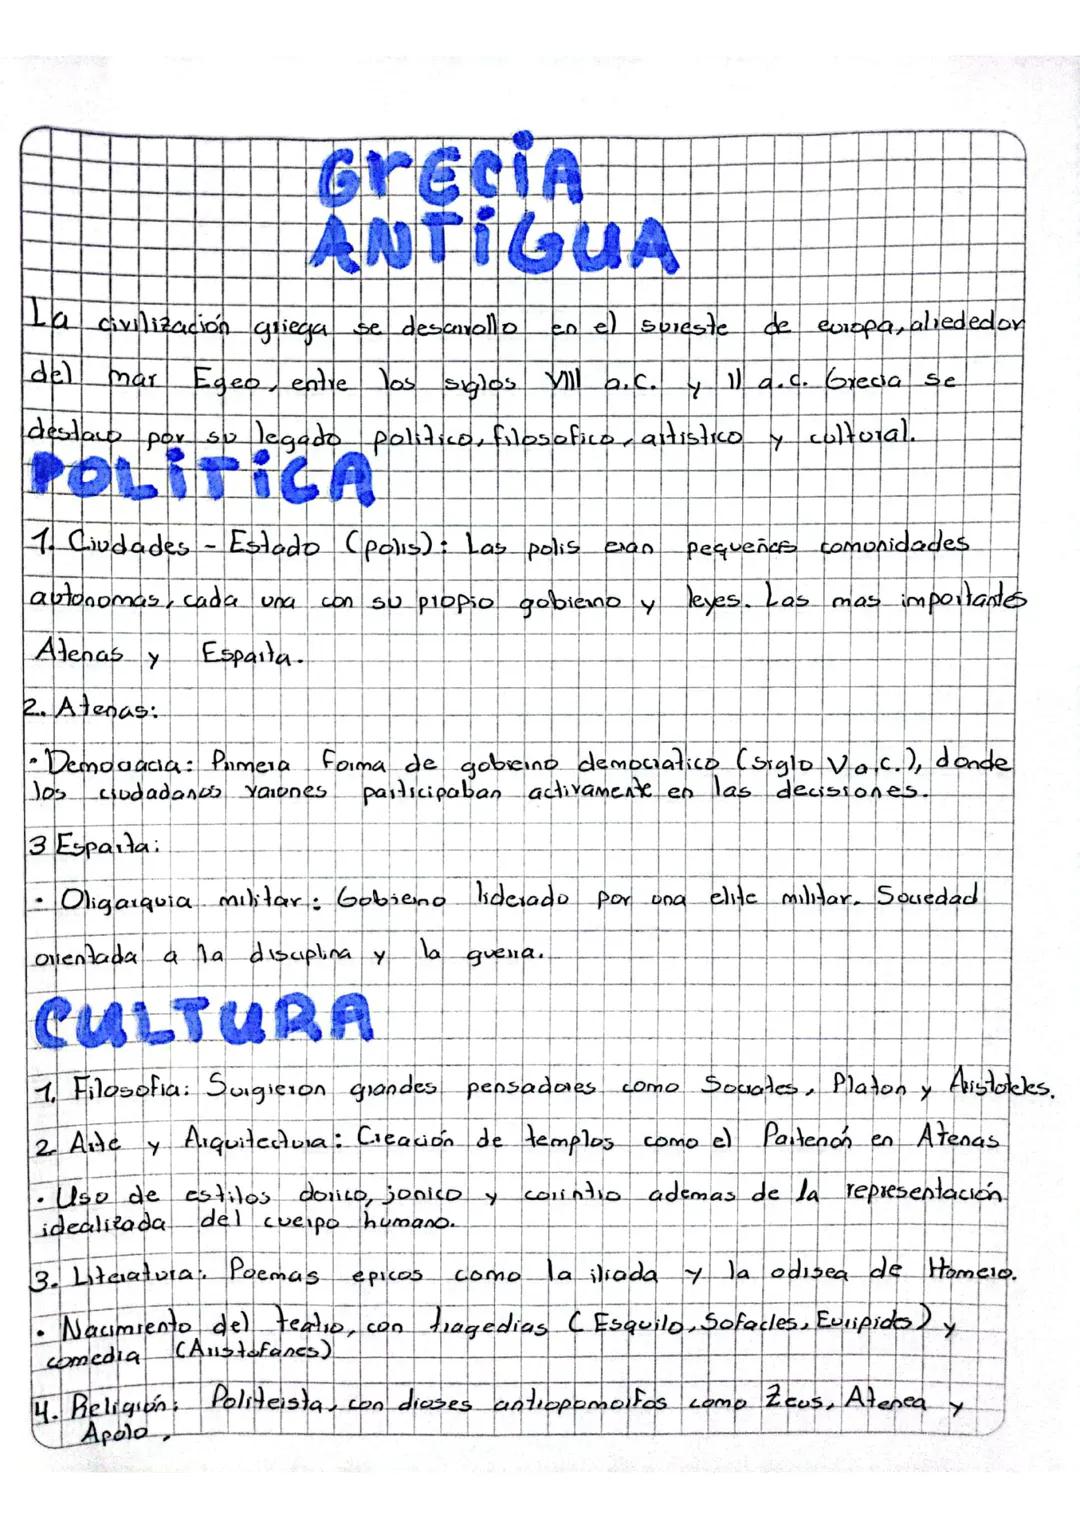 GrECiA
ANTiGUA
La civilización griega se desarrollo en el sureste de europa, alrededor
del mar Egeo, entre los siglos VIII a.C. y II a.C. Grecia se
destaco por su legado politico, filosofico, artistico y cultural.
POLiTiCA
1. Ciudades - Estado (polis): Las polis eran pequeñas comunidades
autonomas, cada una con su propio gobierno y leyes. Las mas importantes
Atenas y Esparta.
2. Atenas:
• Democracia: Primera forma de gobreino democratico (siglo V a.C.), donde
los ciudadanos varones participaban activamente en las decisiones.
3 Esparta:
• Oligarquia militar: Gobierno liderado por una elite militar. Sociedad
orientada a la disciplina y la guerra.
CULTURA
1. Filosofia: Surgieron grandes pensadores como Socrates, Platon y Aristoteles.
2 Arte y Arquitectura: Creación de templos como el Partenón en Atenas
• Uso de estilos dorico, jonico y corintio ademas de la representación
idealizada del cuerpo humano.
3. Literatura: Poemas epicos como la iliada y la odisea de Homero.
• Nacimiento del teatro, con tragedias (Esquilo, Sofacles, Euripides) y
comedia (Aristofanes)
4. Religión: Politeista, con dioses antropomorfos como Zeus, Atenea y
Apolo.